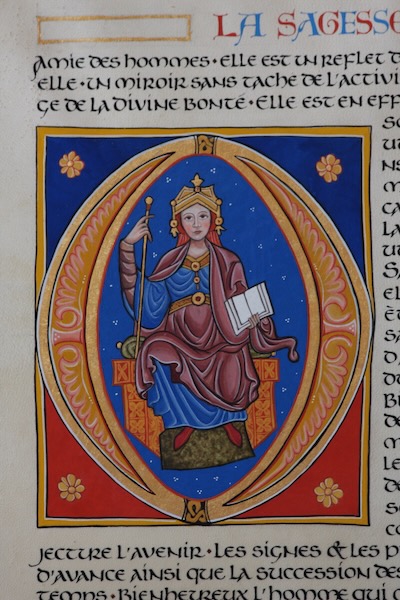 LA SAGESSE
Amie des hommes · elle est un reflet d
elle · un miroir sans tache de l'activi
ge de la divine bonté · elle est en eff
ut
ns
la
ut
el
jecture l'avenir · les signes & les p
d'avance ainsi que la succession des
temps · Bienheureux l'homme qui